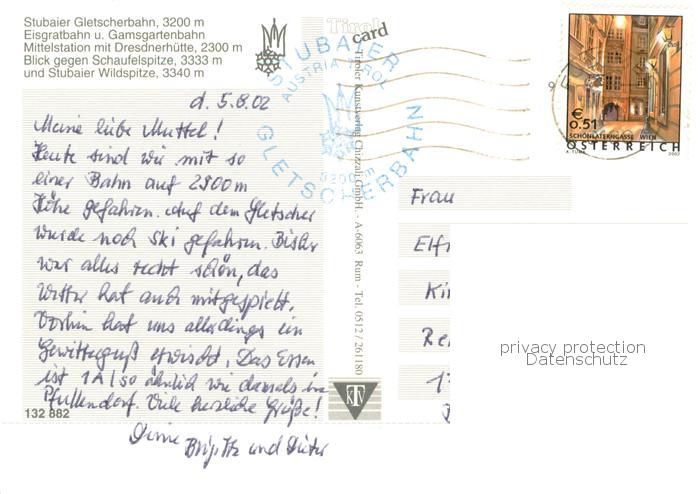 Stubaier Gletscherbahn, 3200 m
Eisgratbahn u. Gamsgartenbahn
Mittelstation mit Dresdnerhütte, 2300 m
Blick gegen Schaufelspitze, 3333 m
und Stubaier Wildspitze, 3340 m
Tirol
card
STUBAIER
AUSTRIA TIROL
3200 m
GLETSCHERBAHN
€
0.51
SCHÖNLATERNGASSE WIEN
ÖSTERREICH
A. TUMA
2002
d. 5.8.02
Meine liebe Muttel!
Heute sind wir mit so
einer Bahn auf 2900m
Höhe gefahren. Auf dem Gletscher
wurde noch Ski gefahren. Bisher
war alles recht schön, das
Wetter hat auch mitgespielt.
Vorhin hat uns allerdings ein
Gewitterguß erwischt. Das Essen
ist 1A / so ähnlich wie damals in
Pfullendorf. Viele herzliche Grüße!
Deine Brigitte und Dieter
132 882
Tiroler Kunstverlag Chizzali GmbH. - A-6063 Rum - Tel. 0512 / 261180
KTV
Frau
Elfr
Kir
Re
privacy protection
Datenschutz